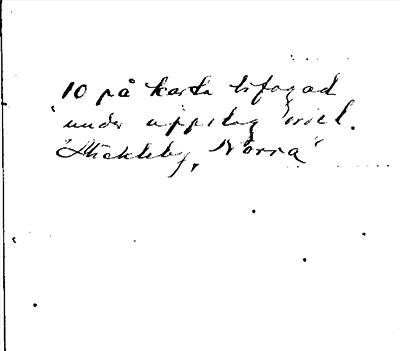 10 på karta bifogad
under uppslag
"Stickleby, Norra"